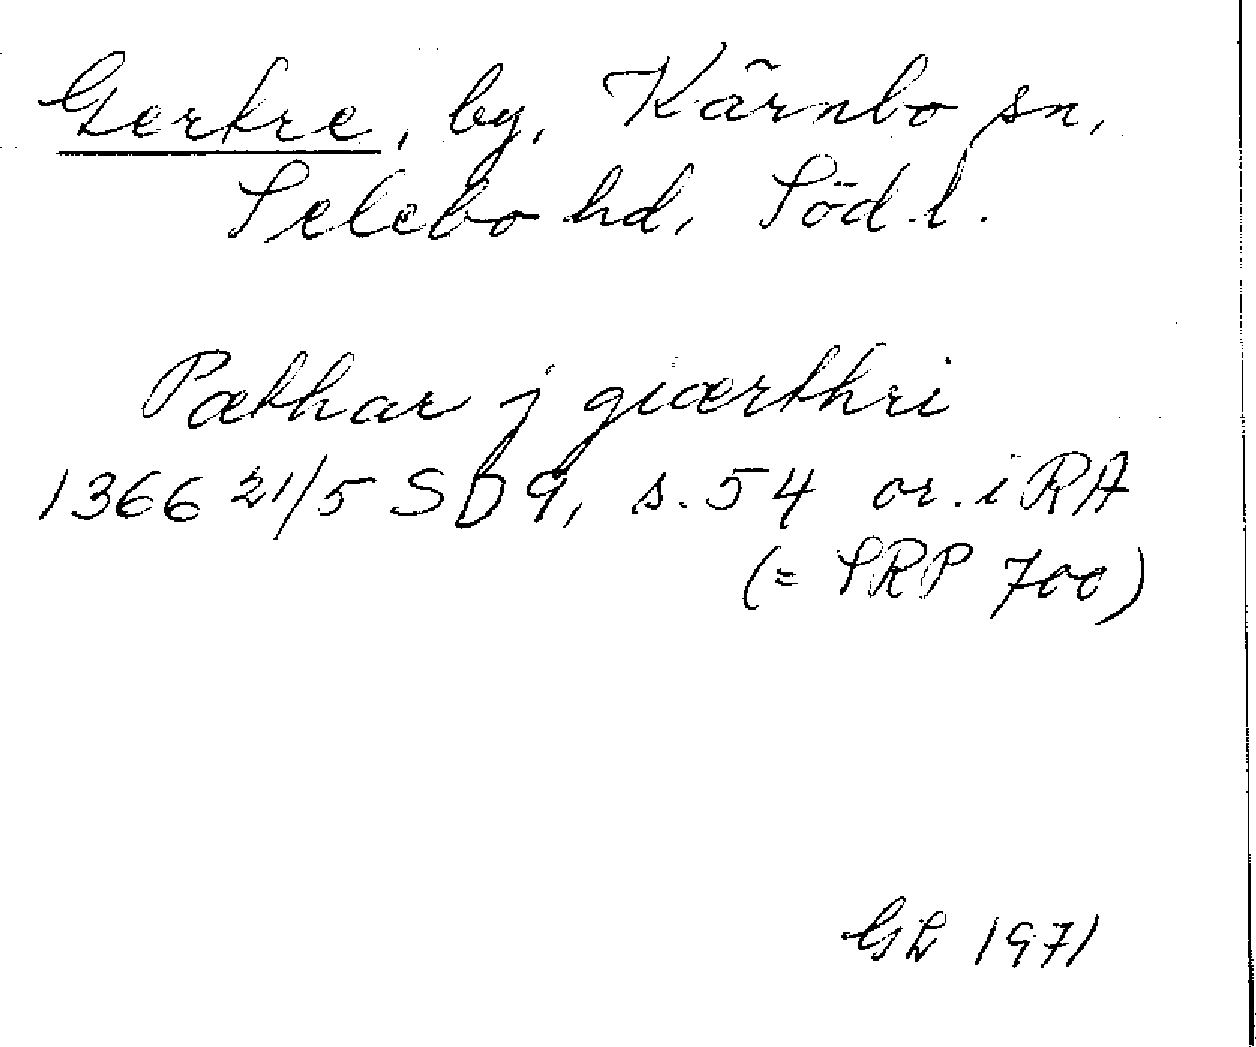 Gerkre, by, Kärnbo sn,
Selebo hd, Söd.l.
Pæthar j giærthri
1366 21/5 SD 9, s. 54 or. i RA
(= SRP 700)
GL 1971